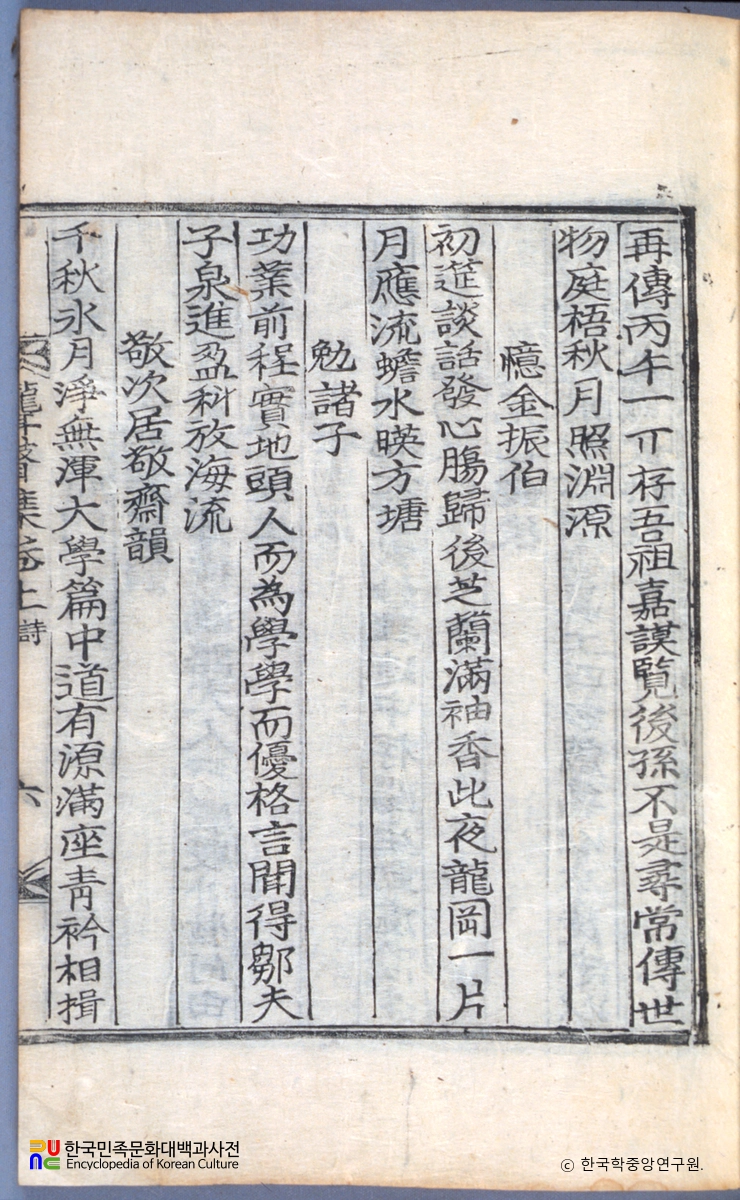 再傳丙午一丌存吾祖嘉謨覽後孫不是尋常傳世
物庭梧秋月照淵源
憶金振伯
初筵談話發心膓歸後芝蘭滿袖香此夜龍岡一片
月應流蟾水暎方塘
勉諸子
功業前程實地頭人而為學學而優格言聞得鄒夫
子泉進盈科放海流
敬次居敬齋韻
千秋水月淨無渾大學篇中道有源滿座靑衿相揖
集卷上 詩 六
한국민족문화대백과사전
Encyclopedia of Korean Culture
© 한국학중앙연구원.